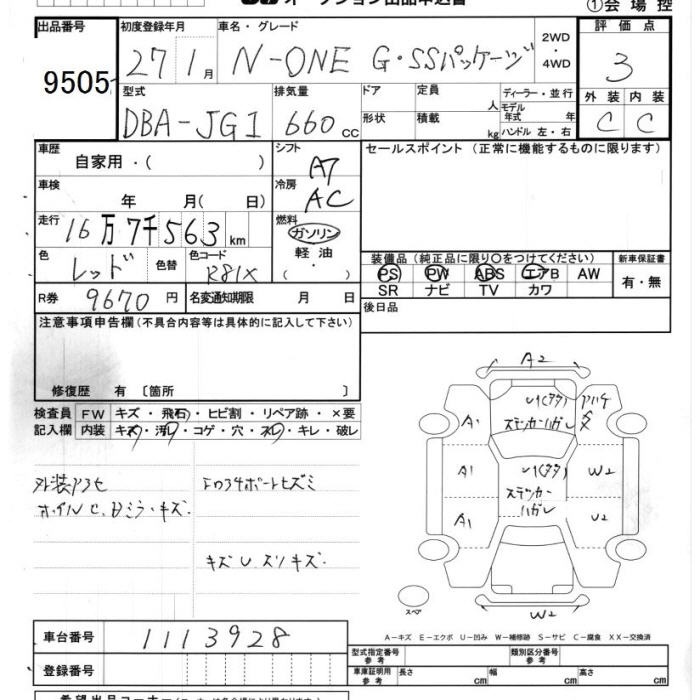 オークション出品申込書
①会場控
出品番号
9505
初度登録年月
27 1月
車名・グレード
N-ONE G・SSパッケージ
2WD
・
4WD
評価点
3
外装 内装
C C
型式
DBA-JG1
排気量
660cc
ドア
形状
定員
人
積載
kg
ディーラー・並行
モデル年式 年
ハンドル 左・右
車歴
自家用・( )
車検
年 月( 日)
走行
16万7千563km
色
レッド
色替
色コード
R81X
R券
9670円
名変通知期限 月 日
シフト
A7
冷房
AC
燃料
ガソリン
軽油
( ・ )
セールスポイント (正常に機能するものに限ります)
装備品(純正品に限り○をつけてください)
PS PW ABS エアB AW
SR ナビ TV カワ
新車保証書
有・無
後日品
注意事項申告欄(不具合内容等は具体的に記入して下さい)
修復歴 有 〔箇所 〕
検査員記入欄
FW キズ・飛石・ヒビ割・リペア跡・×要
内装 キズ・汚レ・コゲ・穴・スレ・キレ・破レ
外装アセ
キズ
キズ
A2
A1
ステッカーハガレ
A1
W2
ステッカー
ハガレ
A1
U2
W2
スペア
A-キズ E-エクボ U-凹み W-補修跡 S-サビ C-腐食 XX-交換済
車台番号
1113928
登録番号
型式指定番号
参考
類別区分番号
参考
車庫証明用
参考
長さ cm 幅 cm 高さ cm
希望出品コーナー